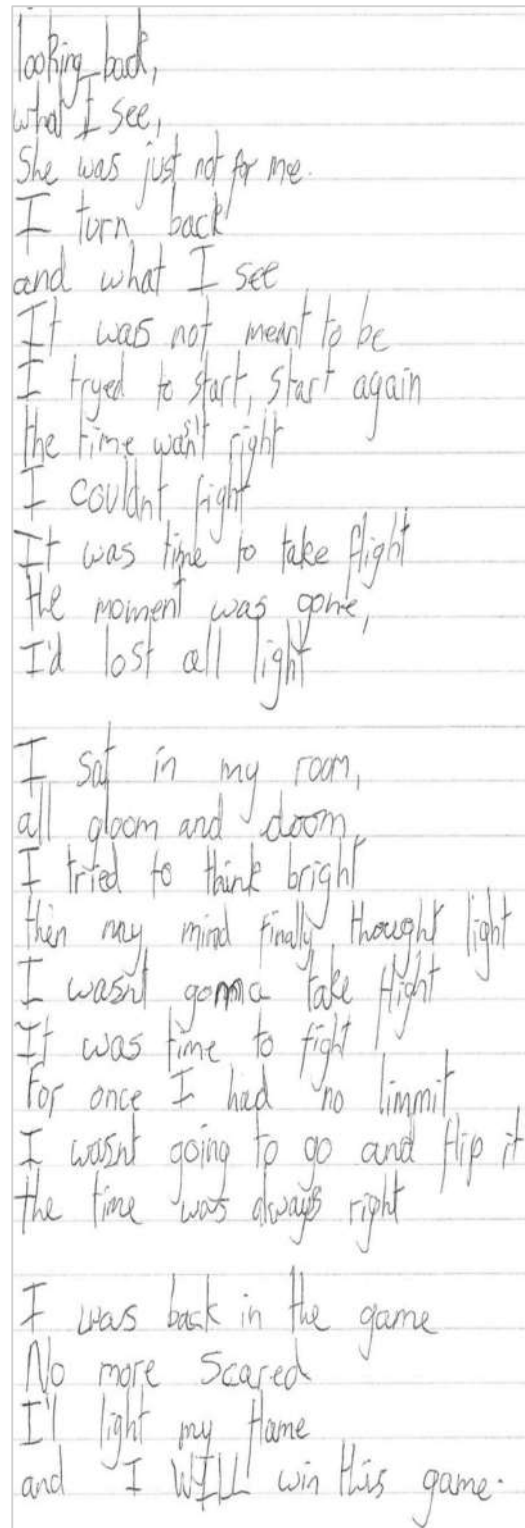 looking back,
what I see,
She was just not for me.
I turn back
and what I see
It was not meant to be
I tryed to start, start again
the time wasn't right
I couldnt fight
It was time to take flight
the moment was gone,
I'd lost all light
I sat in my room,
all gloom and doom,
I tried to think bright
then my mind finally thought light
I wasnt gonna take flight
It was time to fight
For once I had no limmit
I wasnt going to go and flip it
the time was always right
I was back in the game
No more Scared
I'l light my flame
and I WILL win this game.